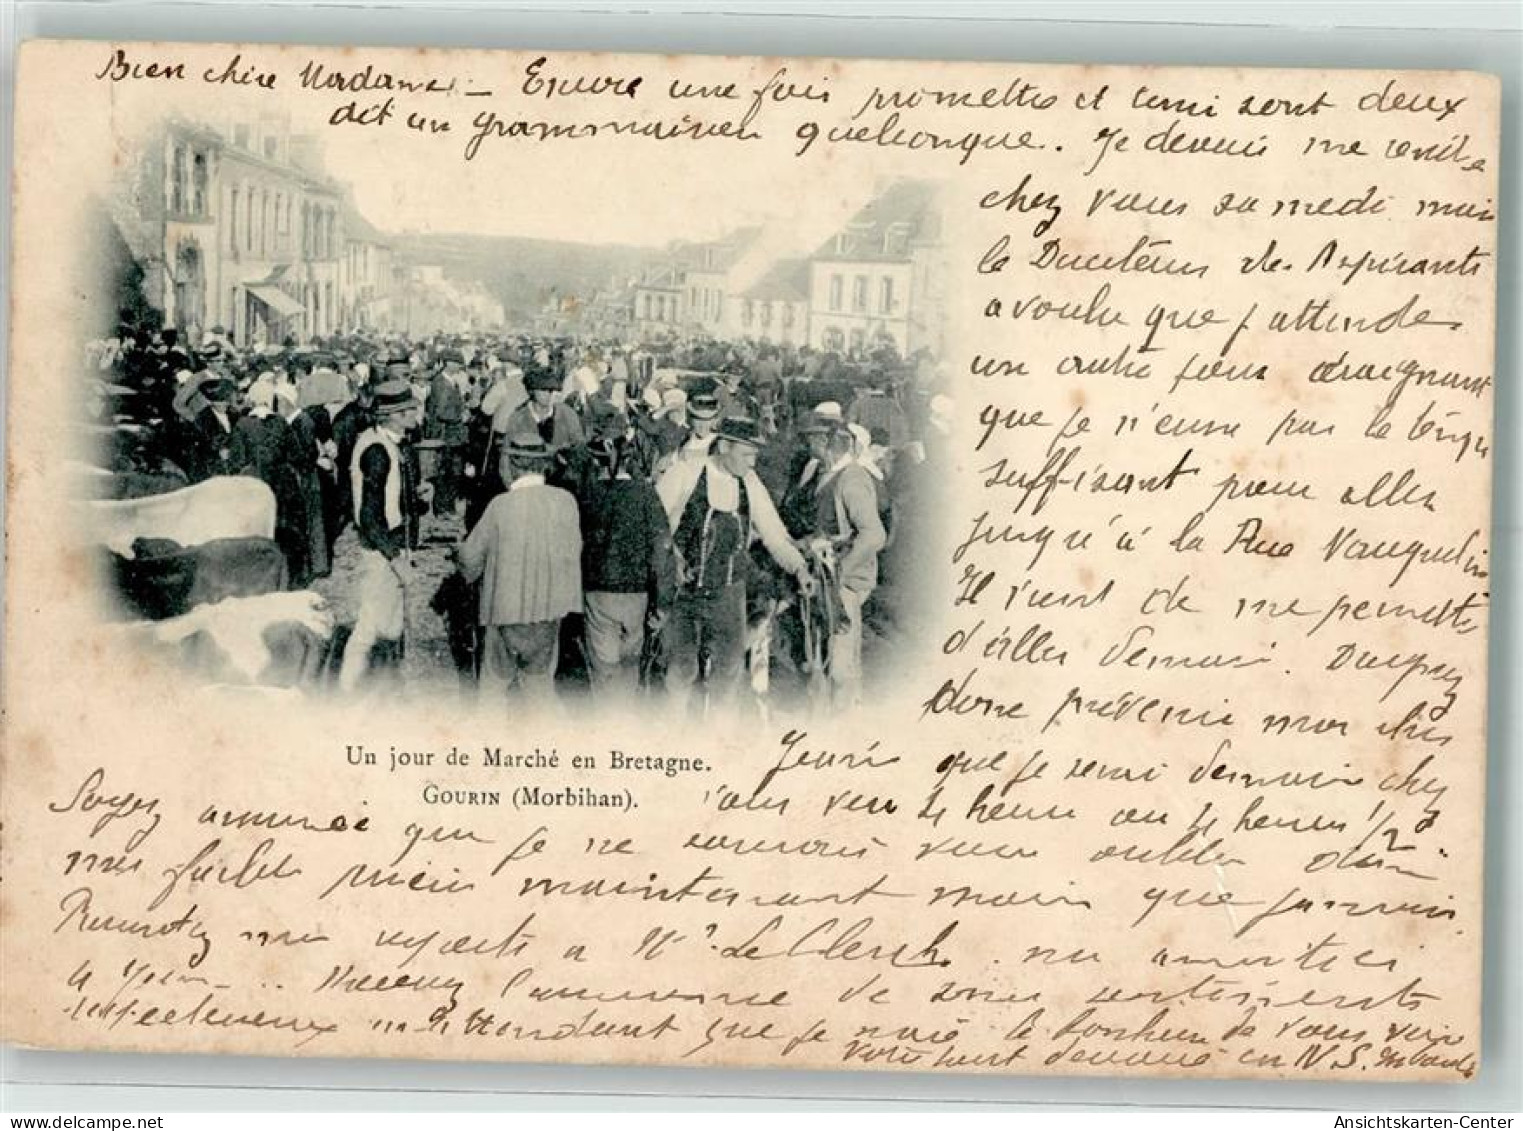 Bien chère Madame – Encore une fois promettre et tenir sont deux
dit un grammairien quelconque. Je devais me rendre
chez vous samedi mais
le Directeur des Aspirants
a voulu que j'attende
un autre jour craignant
que je n'eusse pas le temps
suffisant pour aller
jusqu'à la Rue Vauquelin
Il vient de me permettre
d'aller demain. Daignez
donc prévenir mon cher
que je serai demain chez
vous vers heures ou heures 1/2
Un jour de Marché en Bretagne.
GOURIN (Morbihan).
Soyez assurée que je ne saurais vous oublier
faible maintenant moins que jamais.
Présentez mes respects à Mr Le Clerch. mes amitiés
à Recevez l'assurance de sentiments
affectueux en attendant que j'aie le bonheur de vous voir
Votre tout dévoué en N.S.
Ansichtskarten-Center